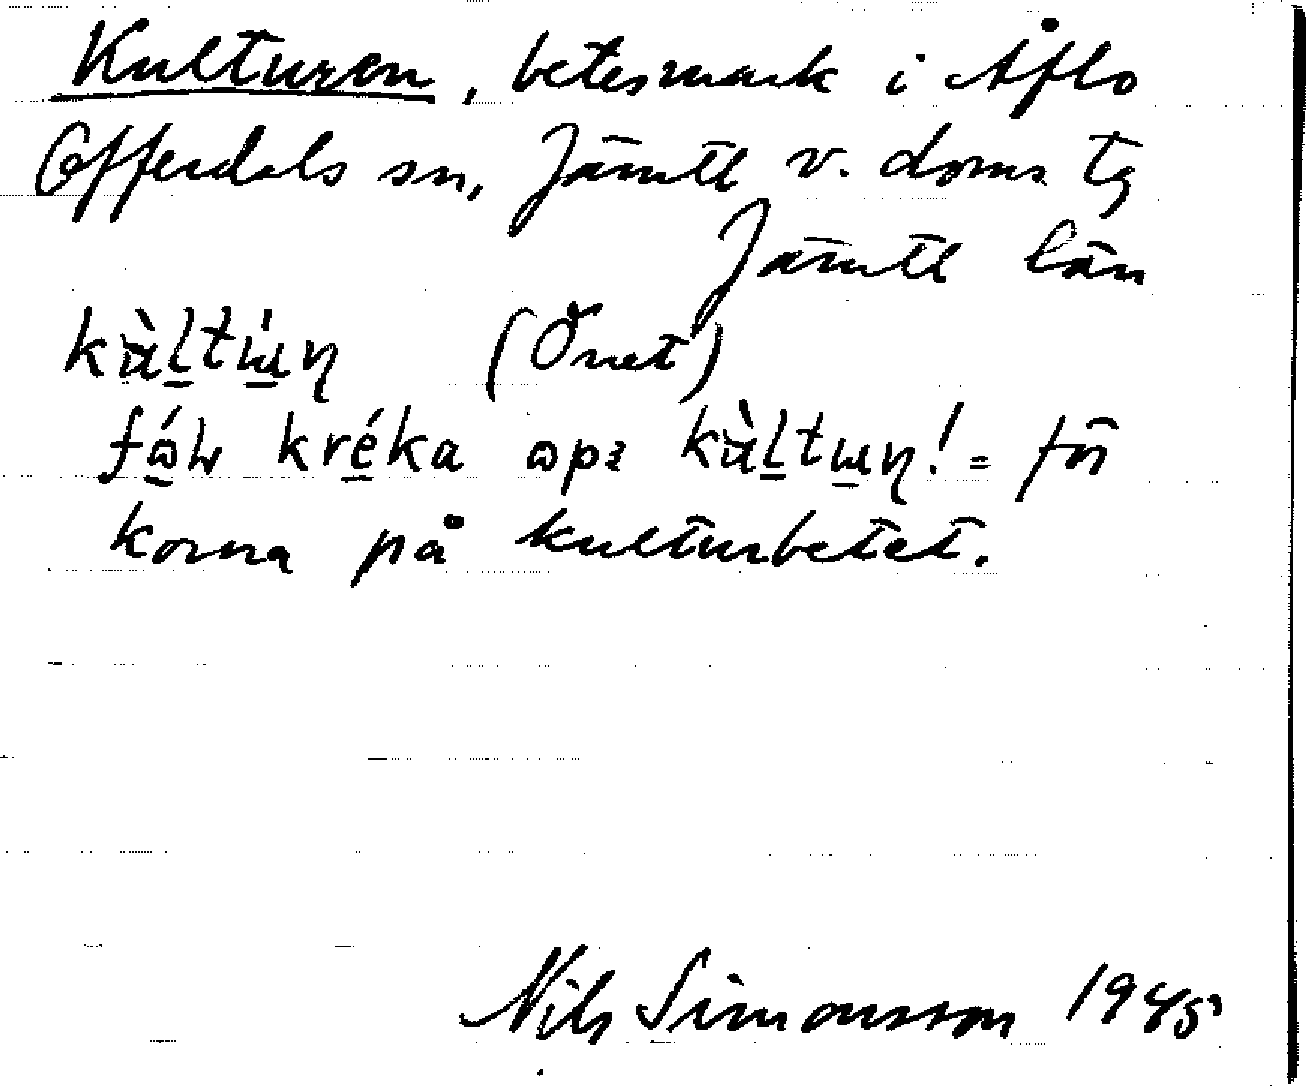 Kulturen, betesmark i Åflo
Offerdals sn, Jämtl v. doms tg
Jämtl län
(Önet)
kréka
= för
korna på kulturbetet.
Nils Simonsson 1945